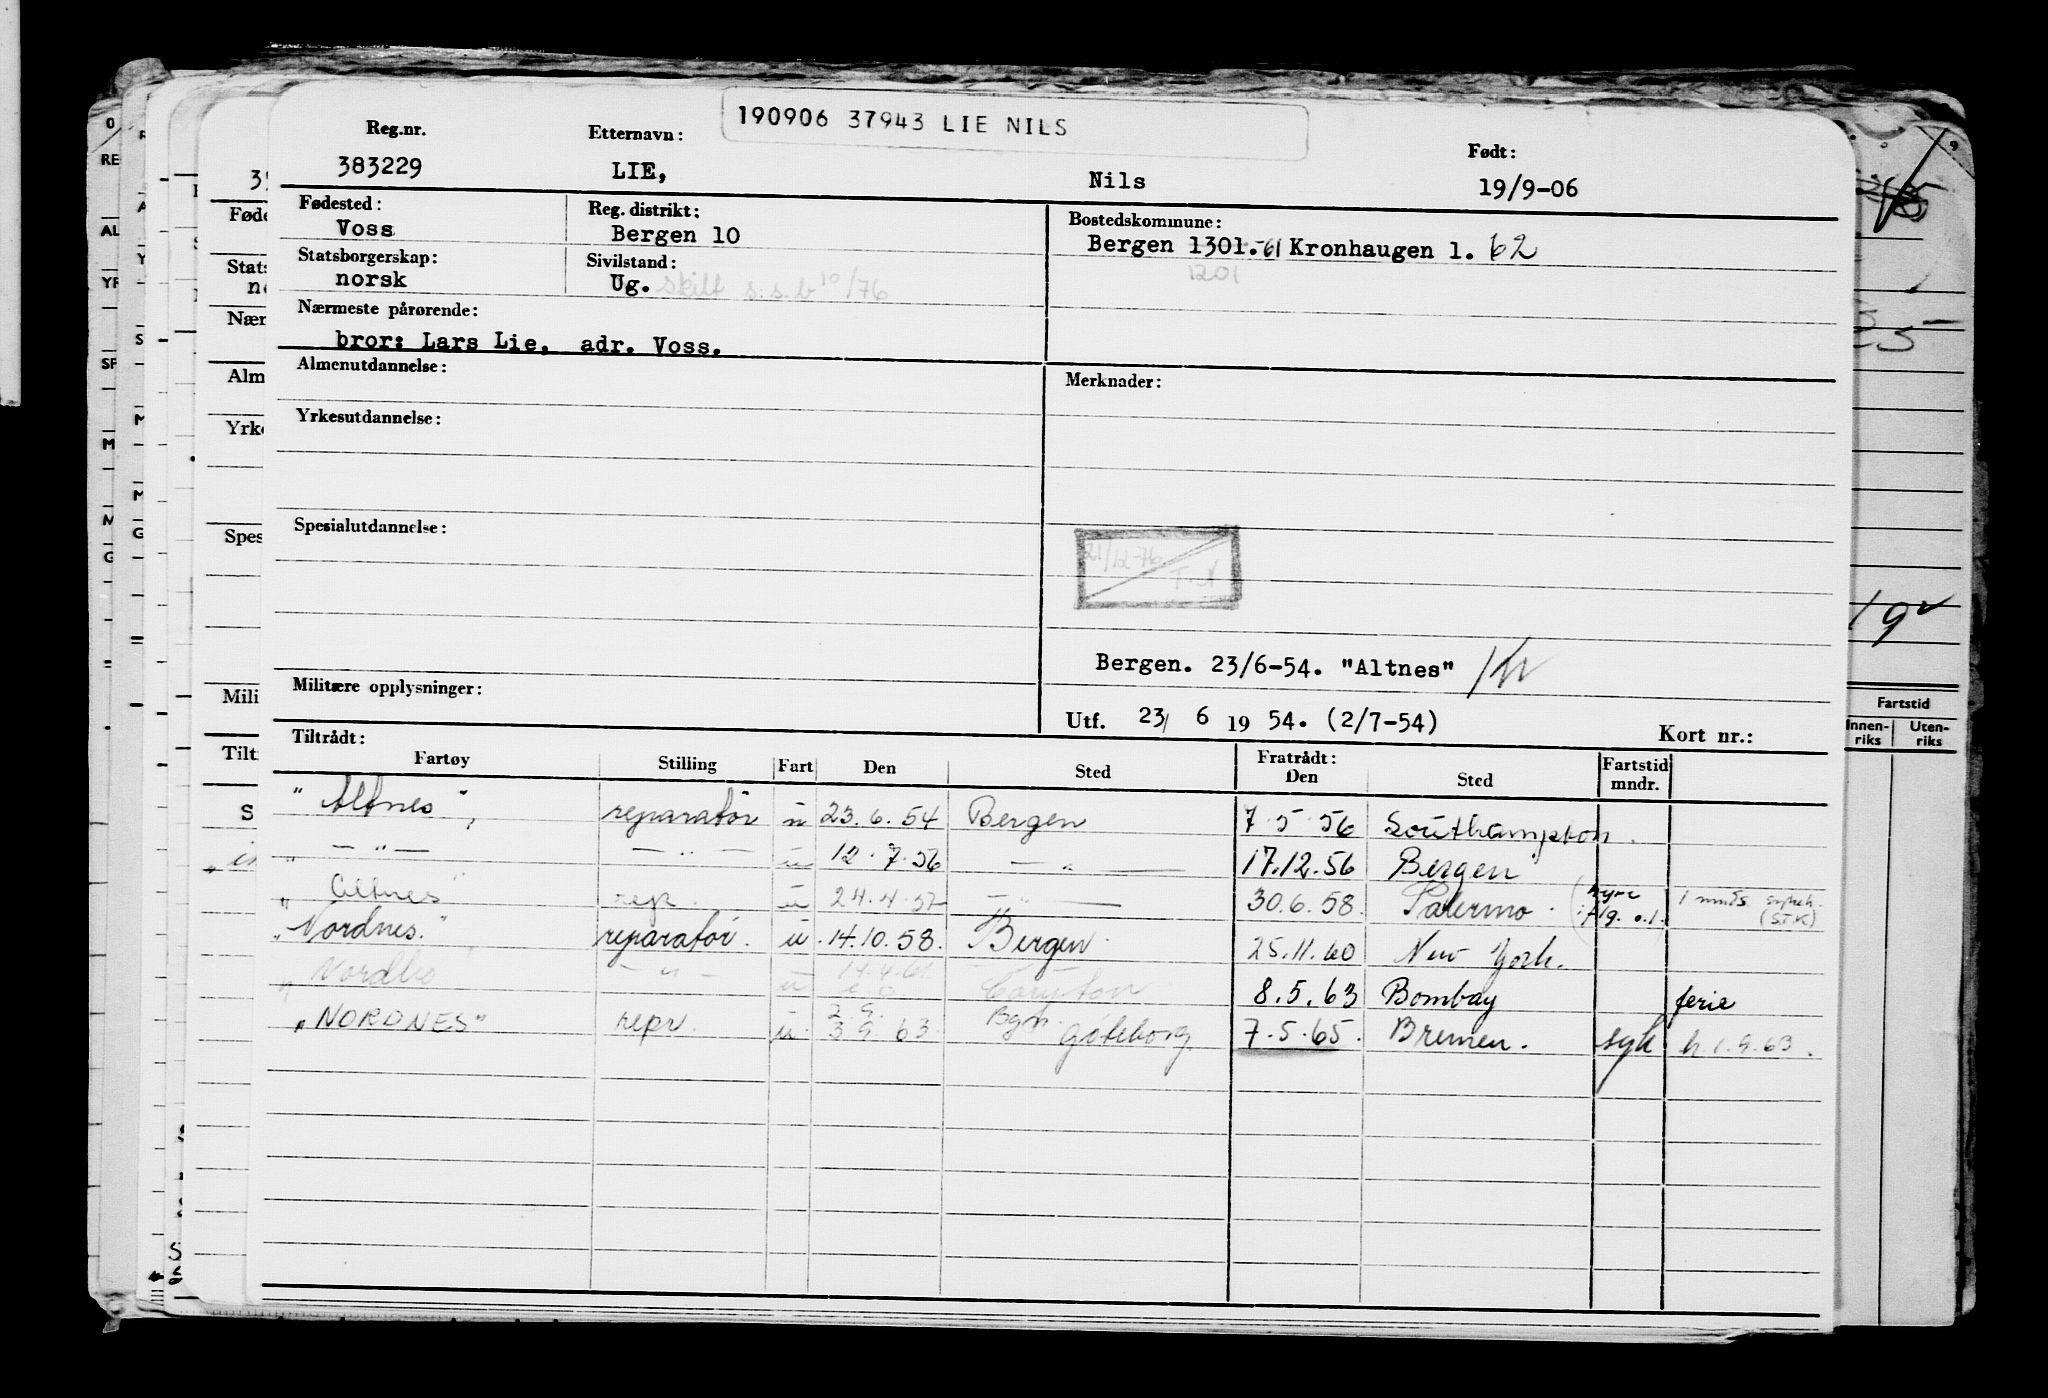 190906 37943 LIE NILS
Reg.nr. Etternavn: Født:
383229 LIE, Nils 19/9-06
Fødested: Reg. distrikt: Bostedskommune:
Voss Bergen 10 Bergen 1301.-61 Kronhaugen 1. 62
1201
Statsborgerskap: Sivilstand:
norsk Ug. skilt s.s.b 10/76
Nærmeste pårørende:
bror: Lars Lie, adr. Voss.
Almenutdannelse: Merknader:
Yrkesutdannelse:
Spesialutdannelse:
21/12-76
Bergen. 23/6-54. "Altnes"
Militære opplysninger:
Utf. 23/ 6 19 54. (2/7-54) Kort nr.:
Tiltrådt: Fratrådt: Fartstid
Fartøy Stilling Fart Den Sted Den Sted mndr.
"Altnes", reparatør u 23.6.54 Bergen 7.5.56 Southampton.
" — " — — " — u 12.7.56 — " — 17.12.56 Bergen
"Altnes" rep. u 24.4.57 — " — 30.6.58. Palermo.
"Nordnes." reparatør. u. 14.10.58. Bergen. 25.11.60 New York.
— " — u 8.5.63 Bombay ferie
"NORDNES" repr. u. 2.9. 3.9.63. Bgn. Göteborg. 7.5.65. Bremen. syk h. 1.9.63.
Fartstid
Innen-riks Uten-riks